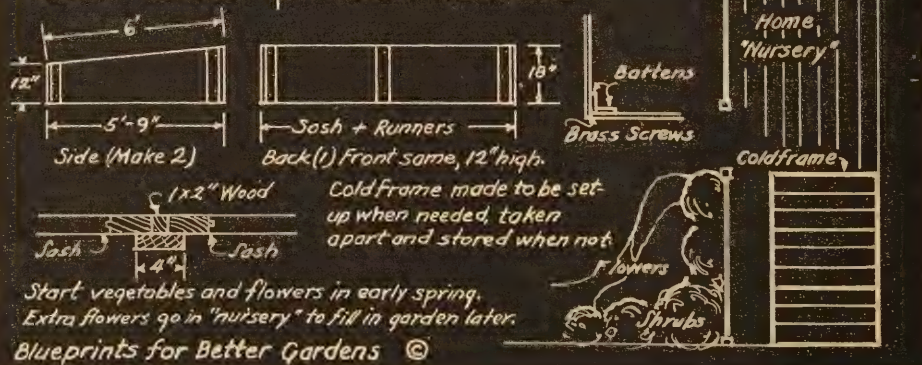 6'
12"
5'-9"
Side (Make 2)
18"
Sash + Runners
Back (1) Front same, 12" high.
Battens
Brass Screws
Home
"Nursery"
Coldframe
1x2" Wood
Sash
Sash
4"
Coldframe made to be set-
up when needed, taken
apart and stored when not.
Flowers
Shrubs
Start vegetables and flowers in early spring.
Extra flowers go in "nursery" to fill in garden later.
Blueprints for Better Gardens ©